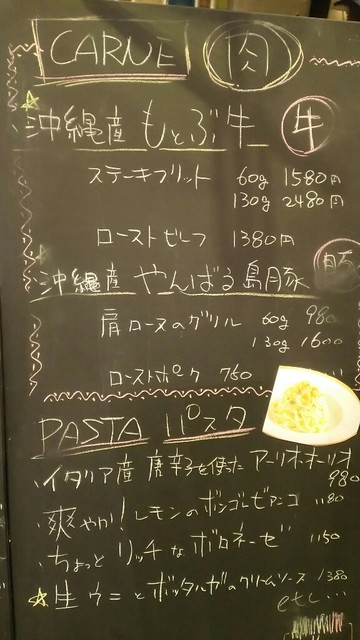 CARNE 肉
沖縄産 もとぶ牛 牛
ステーキフリット 60g 1580円
130g 2480円
ローストビーフ 1380円
沖縄産 やんばる島豚 豚
肩ロースのグリル 60g 980
130g 1600
ローストポーク 750
PASTA パスタ
イタリア産 唐辛子を使った アーリオオーリオ
980
爽やか! レモンのボンゴレビアンコ 1180
ちょっと リッチな ボロネーゼ 1150
生ウニとボッタルガのクリームソース 1380
etc...